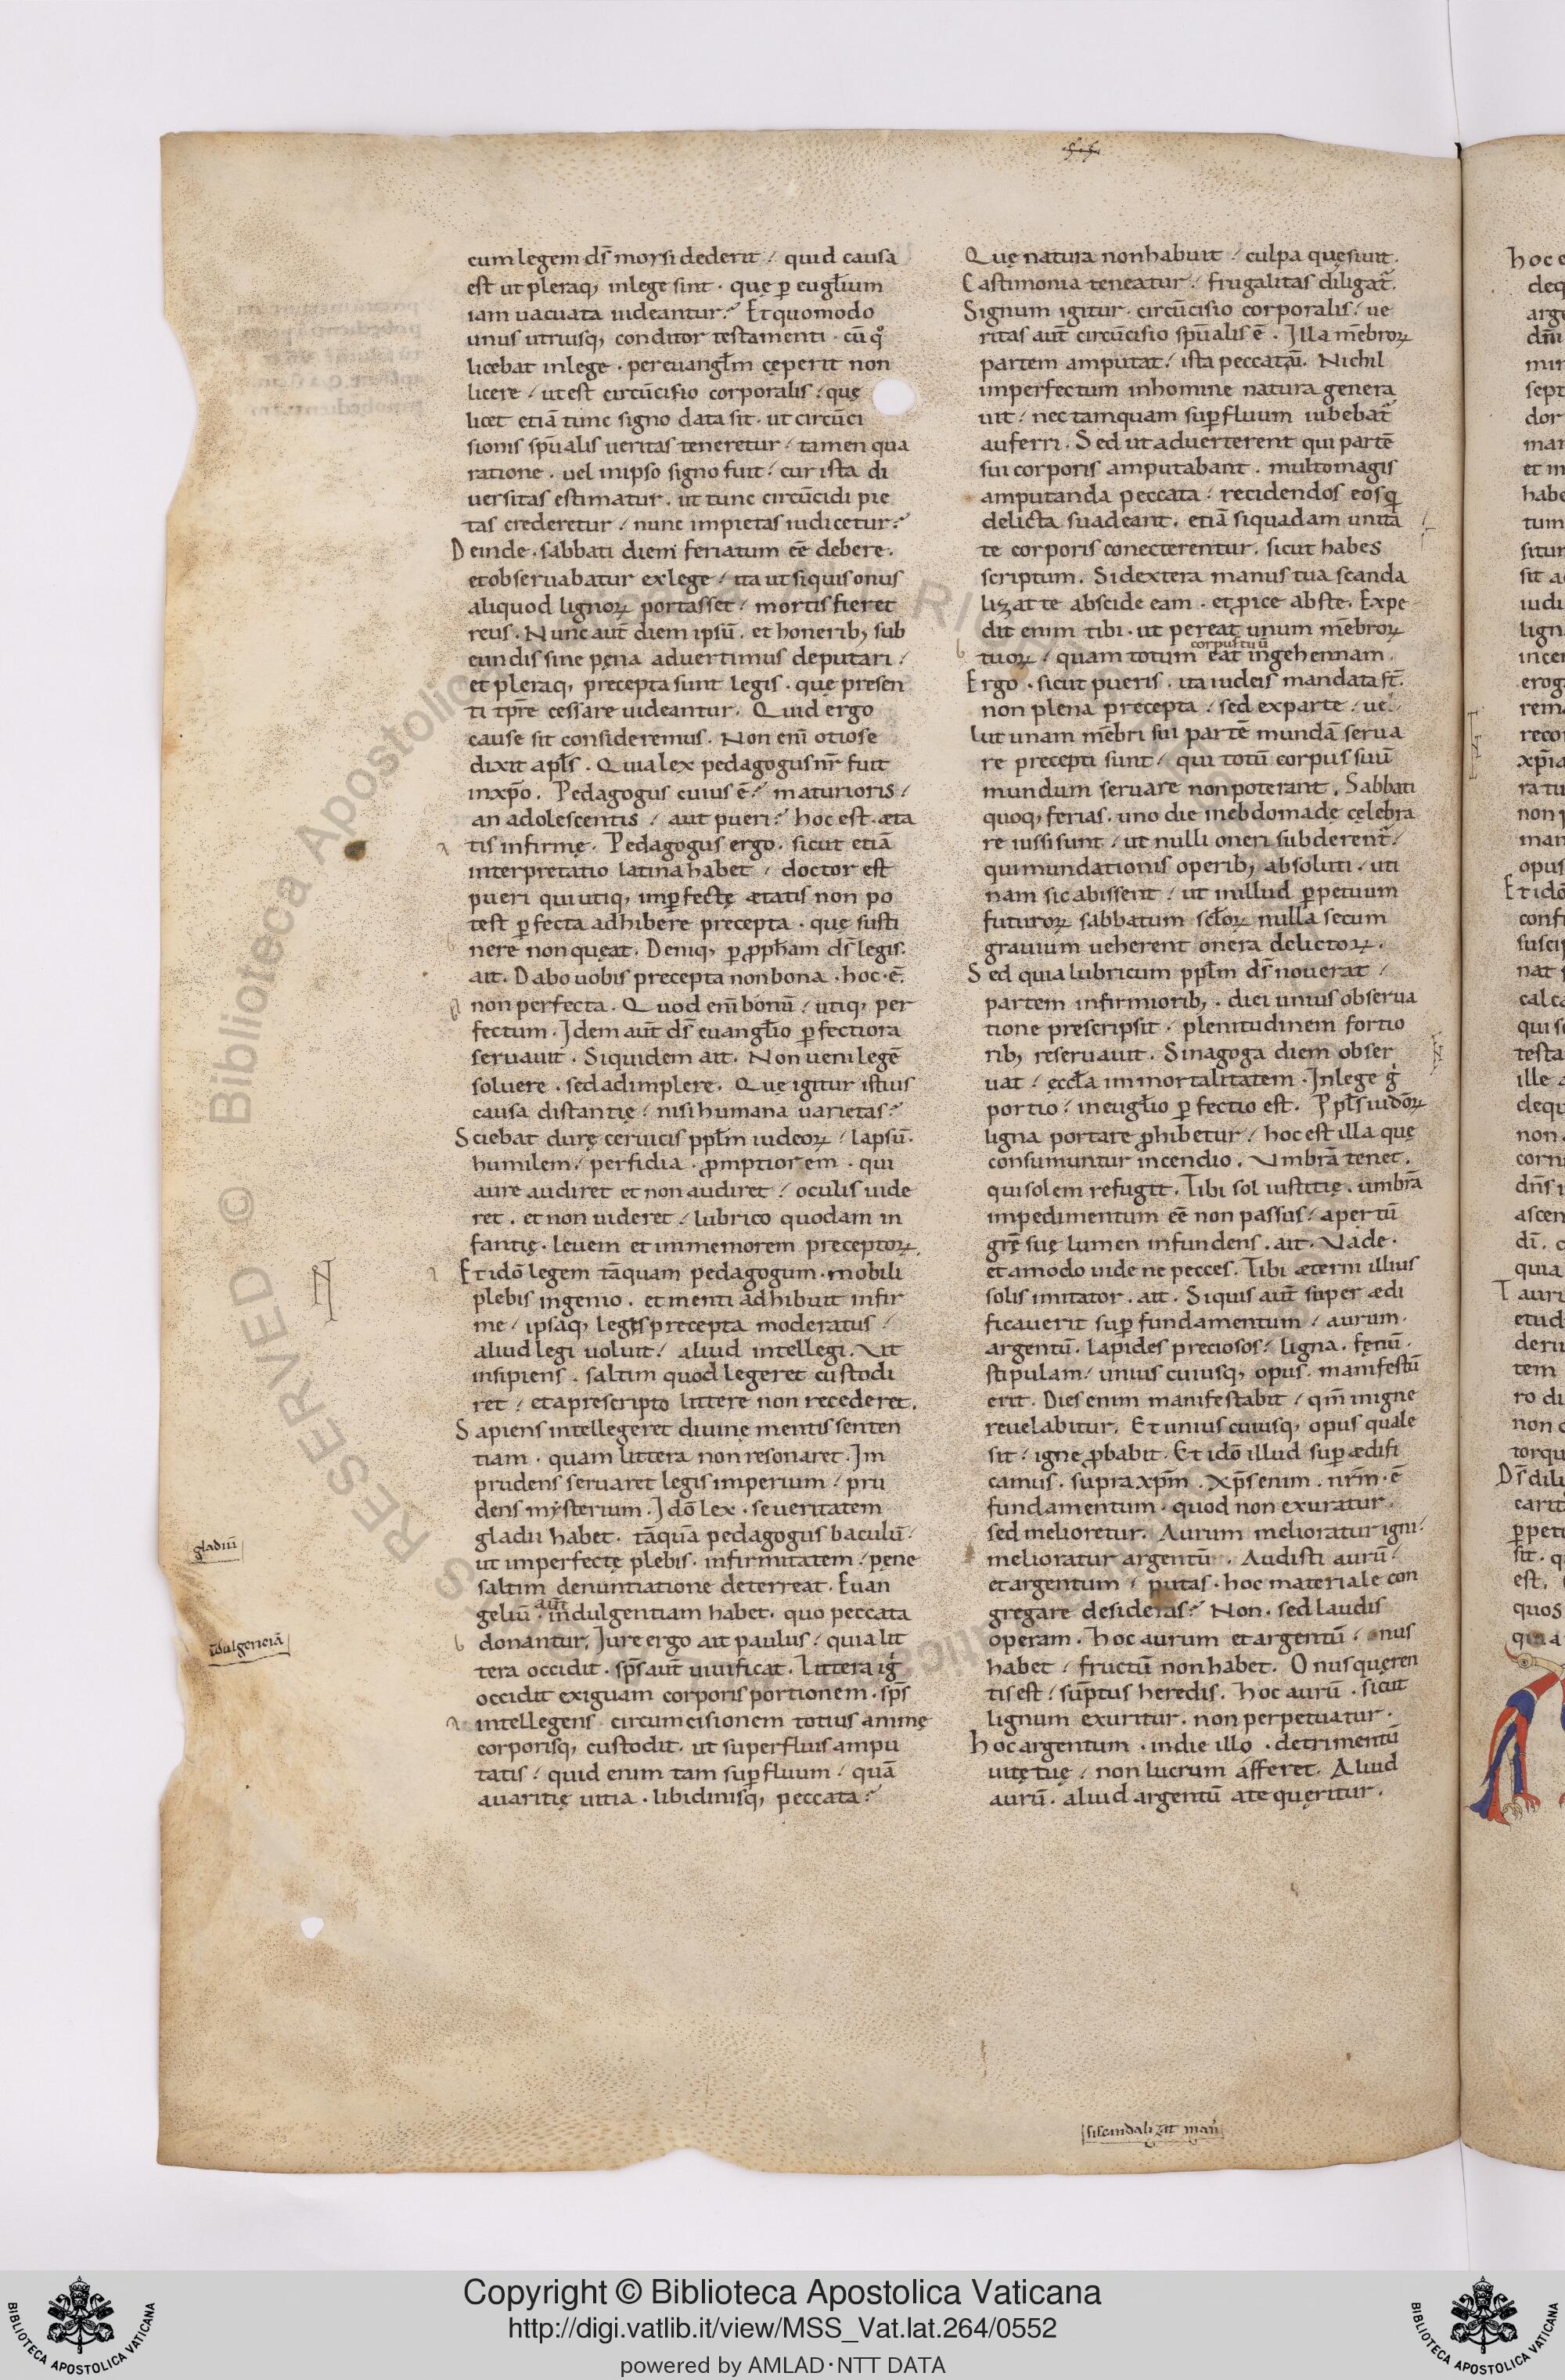 cum legem d̄s moysi dederit / quid causa
est ut pleraq; in lege sint · quę p̱ eugl̄ium
iam uacuata uideantur? Et quomodo
unus utriusq; conditor testamenti · cū qͦ
licebat in lege · per euangl̄m cęperit non
licere / ut est circūcisio corporalis / quę
licet etiā tunc signo data sit · ut circūci
sionis sp̄ualis ueritas teneretur / tamen qua
ratione · uel in ipso signo fuit / cur ista di
uersitas estimatur · ut tunc circūcidi pie
tas crederetur / nunc impietas iudicetur?
Deinde · sabbati diem feriatum eē debere ·
et obseruabatur ex lege / ita ut si quis onus
aliquod lignoꝝ portasset / mortis fieret
reus · Nunc aut̄ diem ipsū · et honerib; sub
eundis sine pęna aduertimus deputari /
et pleraq; precepta sunt legis · quę presen
ti tp̄re cessare uideantur · Quid ergo
cause sit consideremus · Non eni̅ otiose
dixit apl̄s · Quia lex pedagogus nr̄ fuit
in xp̄o · Pedagogus cuius ē? maturioris /
an adolescentis / aut pueri? hoc est · æta
tis infirmę · Pedagogus ergo · sicut etiā
interpretatio latina habet / doctor est
pueri qui utiq; inp̱fectę ætatis non po
test p̱fecta adhibere precepta · quę susti
nere non queat · Deniq; p̱ ꝓph̄am d̄s legis ·
ait · Dabo uobis precepta non bona · hoc · ē ·
non perfecta · Quod eni̅ bonū / utiq; per
fectum · Idem aut̄ d̄s euangl̄io p̱fectiora
seruauit · Siquidem ait · Non ueni legē
soluere · sed adimplere · Quę igitur istius
causa distantię / nisi humana uarietas?
Sciebat durę ceruicis ppl̄m iudeoꝝ / lapsū ·
humilem / perfidia · ꝓmptiorem · qui
aure audiret et non audiret / oculis uide
ret · et non uideret / lubrico quodam in
fantię · leuem et immemorem preceptoꝝ ·
Et idō legem tāquam pedagogum · mobili
plebis ingenio · et menti adhibuit infir
me / ipsaq; legis precepta moderatus /
aliud legi uoluit / aliud intellegi · Vt
insipiens · saltim quod legeret custodi
ret / et a prescripto littere non recederet ·
Sapiens intellegeret diuinę mentis senten
tiam · quam littera non resonaret · Im
prudens seruaret legis imperium / pru
dens mysterium · Idō lex · seueritatem
gladii habet · tāquā pedagogus baculū /
ut imperfectę plebis · infirmitatem / pęne
saltim denuntiatione deterreat · Euan
aut̄
geliū · indulgentiam habet · quo peccata
donantur · Iure ergo ait paulus / quia lit
tera occidit · sp̄s aut̄ uiuificat · Littera ig̊
occidit exiguam corporis portionem · sp̄s
intellegens · circumcisionem totius animę
corporisq; custodit · ut superfluis ampu
tatis / quid enim tam sup̱fluum / quā
auaritię uitia · libidinisq; peccata?
gladiū
īdulgenciā
Quę natura non habuit / culpa quęsiuit ·
Castimonia teneatur / frugalitas diligat̄ ·
Signum igitur · circūcisio corporalis / ue
ritas aut̄ circūcisio sp̄ualis ē · Illa mēbroꝝ
partem amputat / ista peccatū · Nichil
imperfectum in homine natura genera
uit / nec tamquam sup̱fluum iubebat̄
auferri · Sed ut aduerterent qui partē
sui corporis amputabant · multo magis
amputanda peccata / recidendos eosq
delicta suadeant · etiā si quadam unita
te corporis conecterentur · sicut habes
scriptum · Si dextera manus tua scanda
lizat te abscide eam · et ꝓice abs te · Expe
dit enim tibi · ut pereat unum mēbroꝝ
corpus tuū
tuoꝝ / quam totum eat in gehennam ·
Ergo · sicut pueris · ita iudeis mandata st̄ ·
non plena precepta / sed ex parte / ue
lut unam mēbri sui partē mundā serua
re precepti sunt / qui totū corpus suū
mundum seruare non poterant · Sabbati
quoq; ferias · uno die in ebdomade cęlebra
re iussi sunt / ut nulli oneri subderent̄ /
qui mundationis operib; absoluti · uti
nam sic abissent / ut in illud p̱petuum
futuroꝝ sabbatum scl̄oꝝ nulla secum
grauium ueherent onera delictoꝝ ·
Sed quia lubricum ppl̄m d̄s nouerat /
partem infirmiorib; · diei unius obserua
tione prescripsit · plenitudinem fortio
rib; reseruauit · Sinagoga diem obser
uat / eccl̄a immortalitatem · In lege g̊
portio / in eugl̄io p̱fectio est · Ppl̄s iudōꝝ
ligna portare ꝓhibetur / hoc est illa quę
consumuntur incendio · Vmbrā tenet ·
qui solem refugit · Tibi sol iustitię · umbrā
impedimentum eē non passus / apertū
grę̄ suę lumen infundens · ait · Vade ·
et amodo uide ne pecces · Tibi æterni illius
solis imitator · ait · Si quis aut̄ super ædi
ficauerit sup̱ fundamentum / aurum ·
argentū · lapides preciosos / ligna · fęnū ·
stipulam / unius cuiusq; opus · manifestū
erit · Dies enim manifestabit / qm̄ in igne
reuelabitur · Et unius cuiusq; opus quale
sit / igne ꝓbabit · Et idō illud sup̱ædifi
camus · supra xp̄m · Xp̄s enim · nrm̄ · ē
fundamentum · quod non exuratur ·
sed melioretur · Aurum melioratur igni /
melioratur argentū · Audisti aurū /
et argentum / putas · hoc materiale con
gregare desideras? Non · sed laudis
operam · hoc aurum et argentū / onus
habet / fructū non habet · Onus quęren
tis est / sūptus heredis · hoc aurū · sicut
lignum exuritur · non perpetuatur ·
hoc argentum · in die illo · detrimentū
uitę tuę / non lucrum afferet · Aliud
aurū · aliud argentū a te quęritur ·
Copyright © Biblioteca Apostolica Vaticana
http://digi.vatlib.it/view/MSS_Vat.lat.264/0552
powered by AMLAD·NTT DATA
BIBLIOTECA APOSTOLICA VATICANA
BIBLIOTECA APOSTOLICA VATICANA